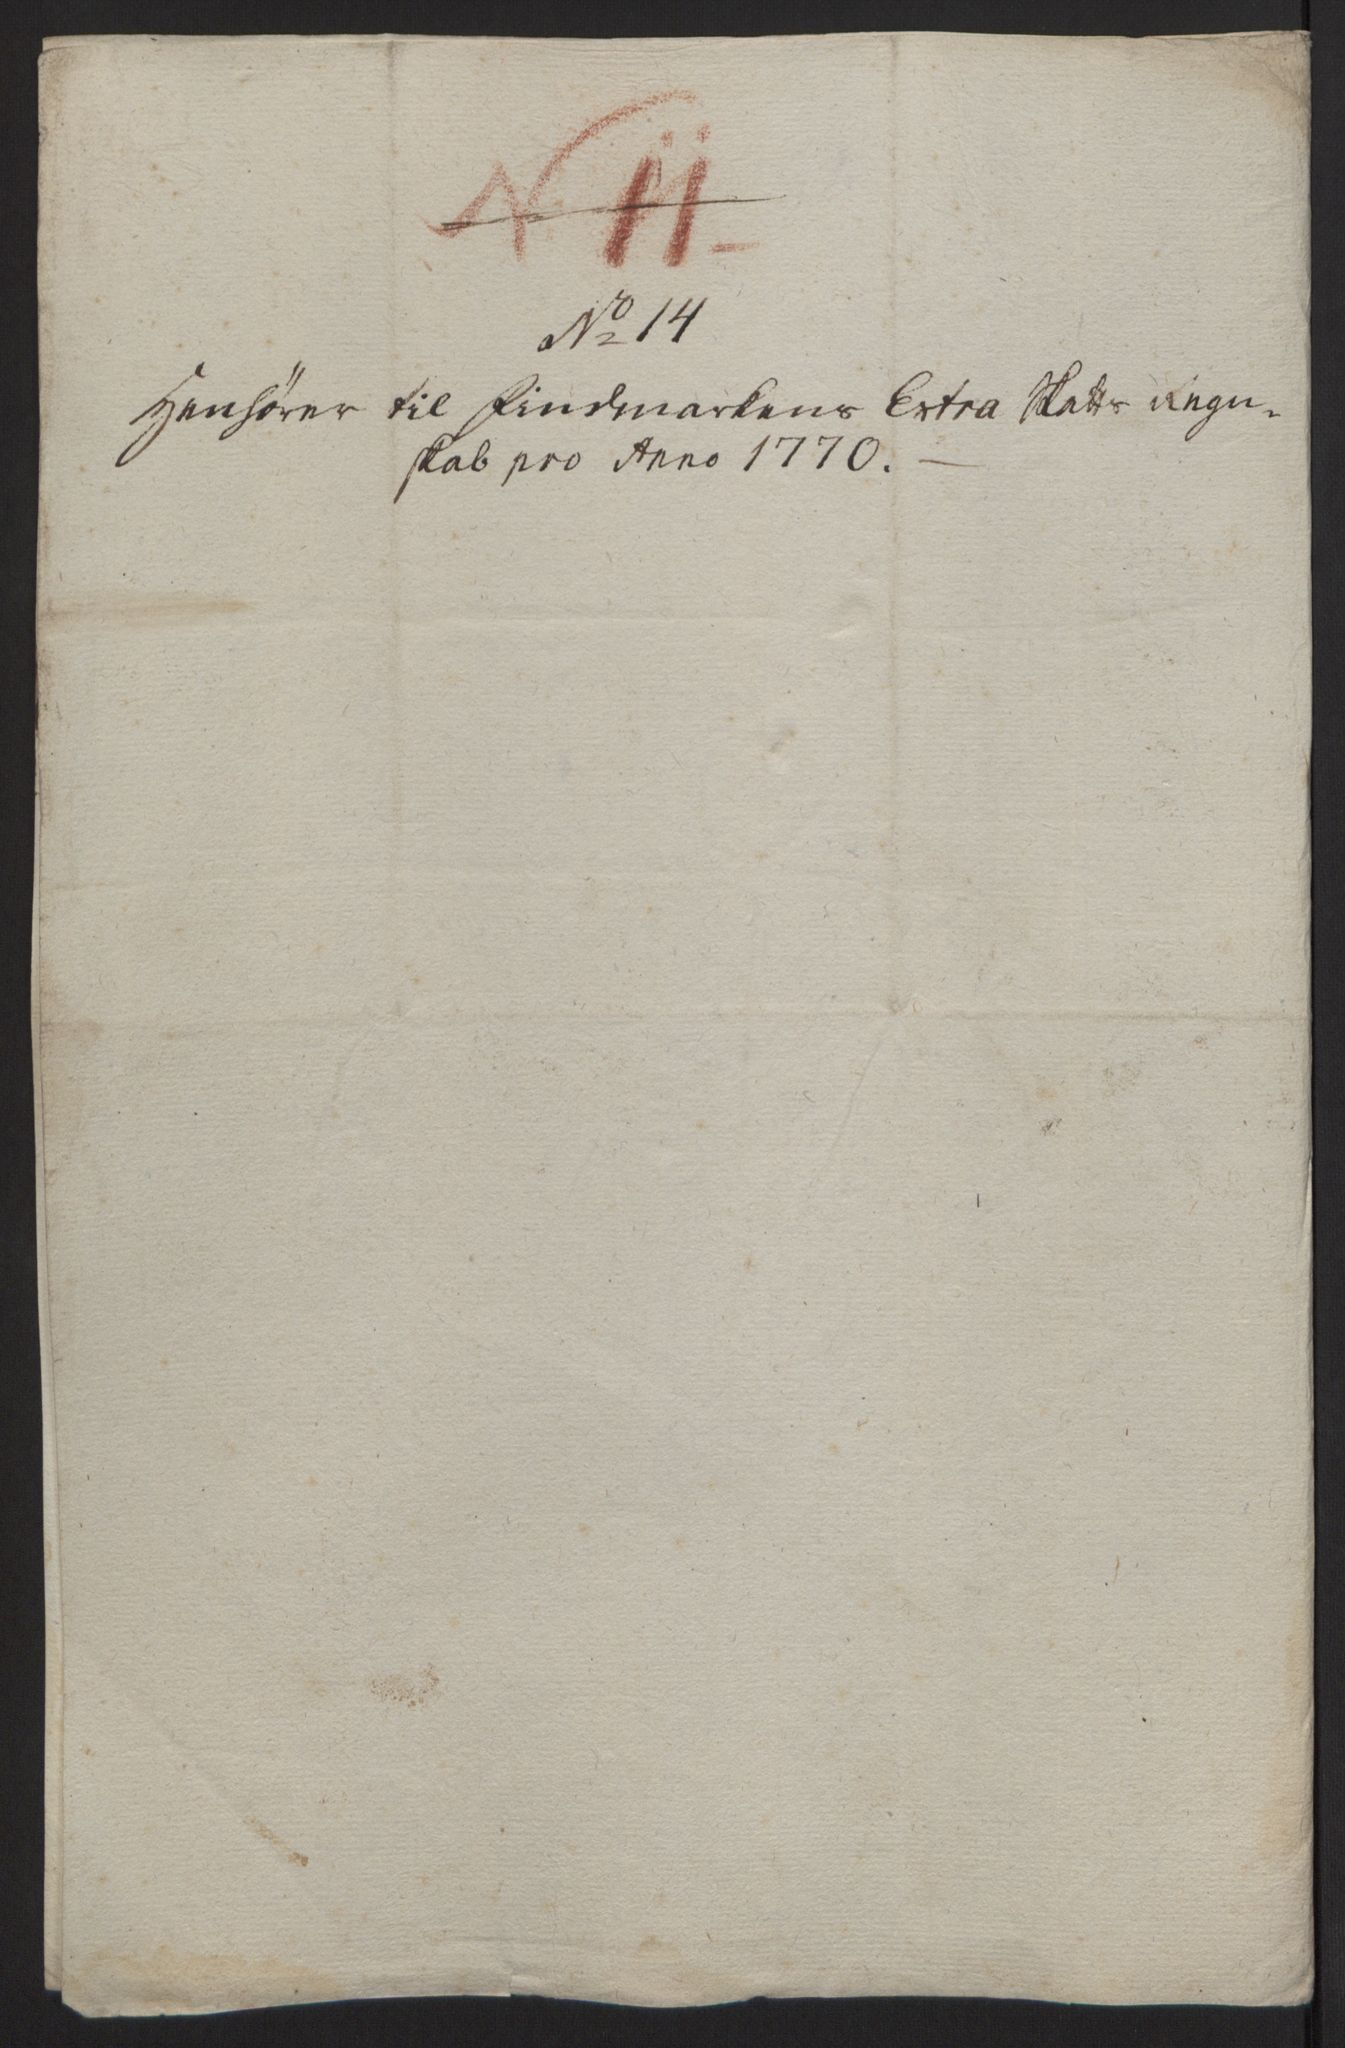 N 11
No 14
Henhörer til Findmarkens Extra Skatts Regn-
skab pro Anno 1770.